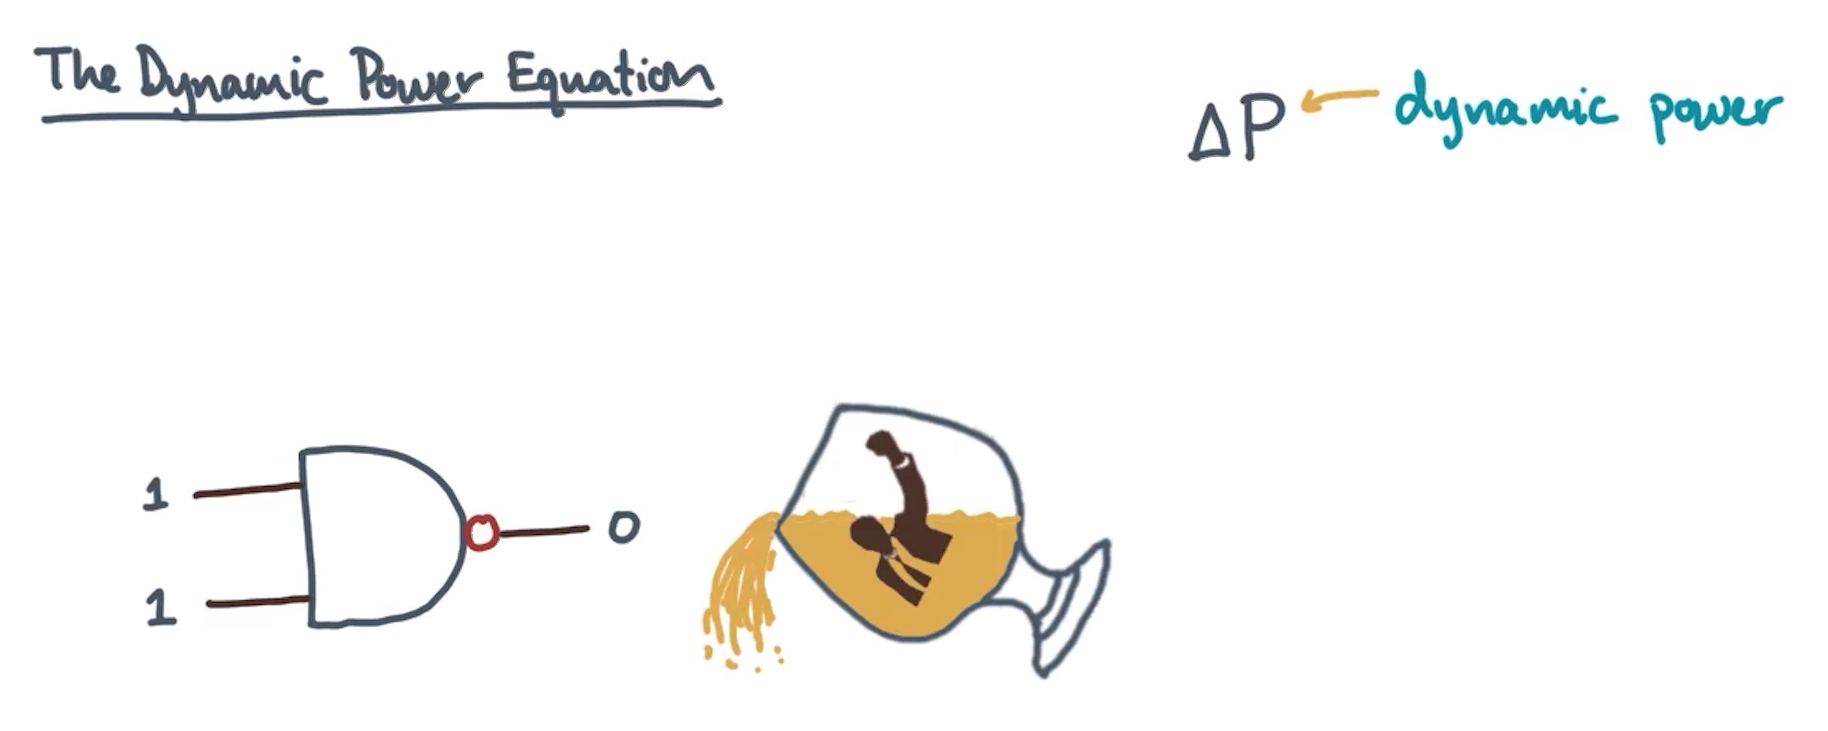 The Dynamic Power Equation
ΔP dynamic power
1
0
1